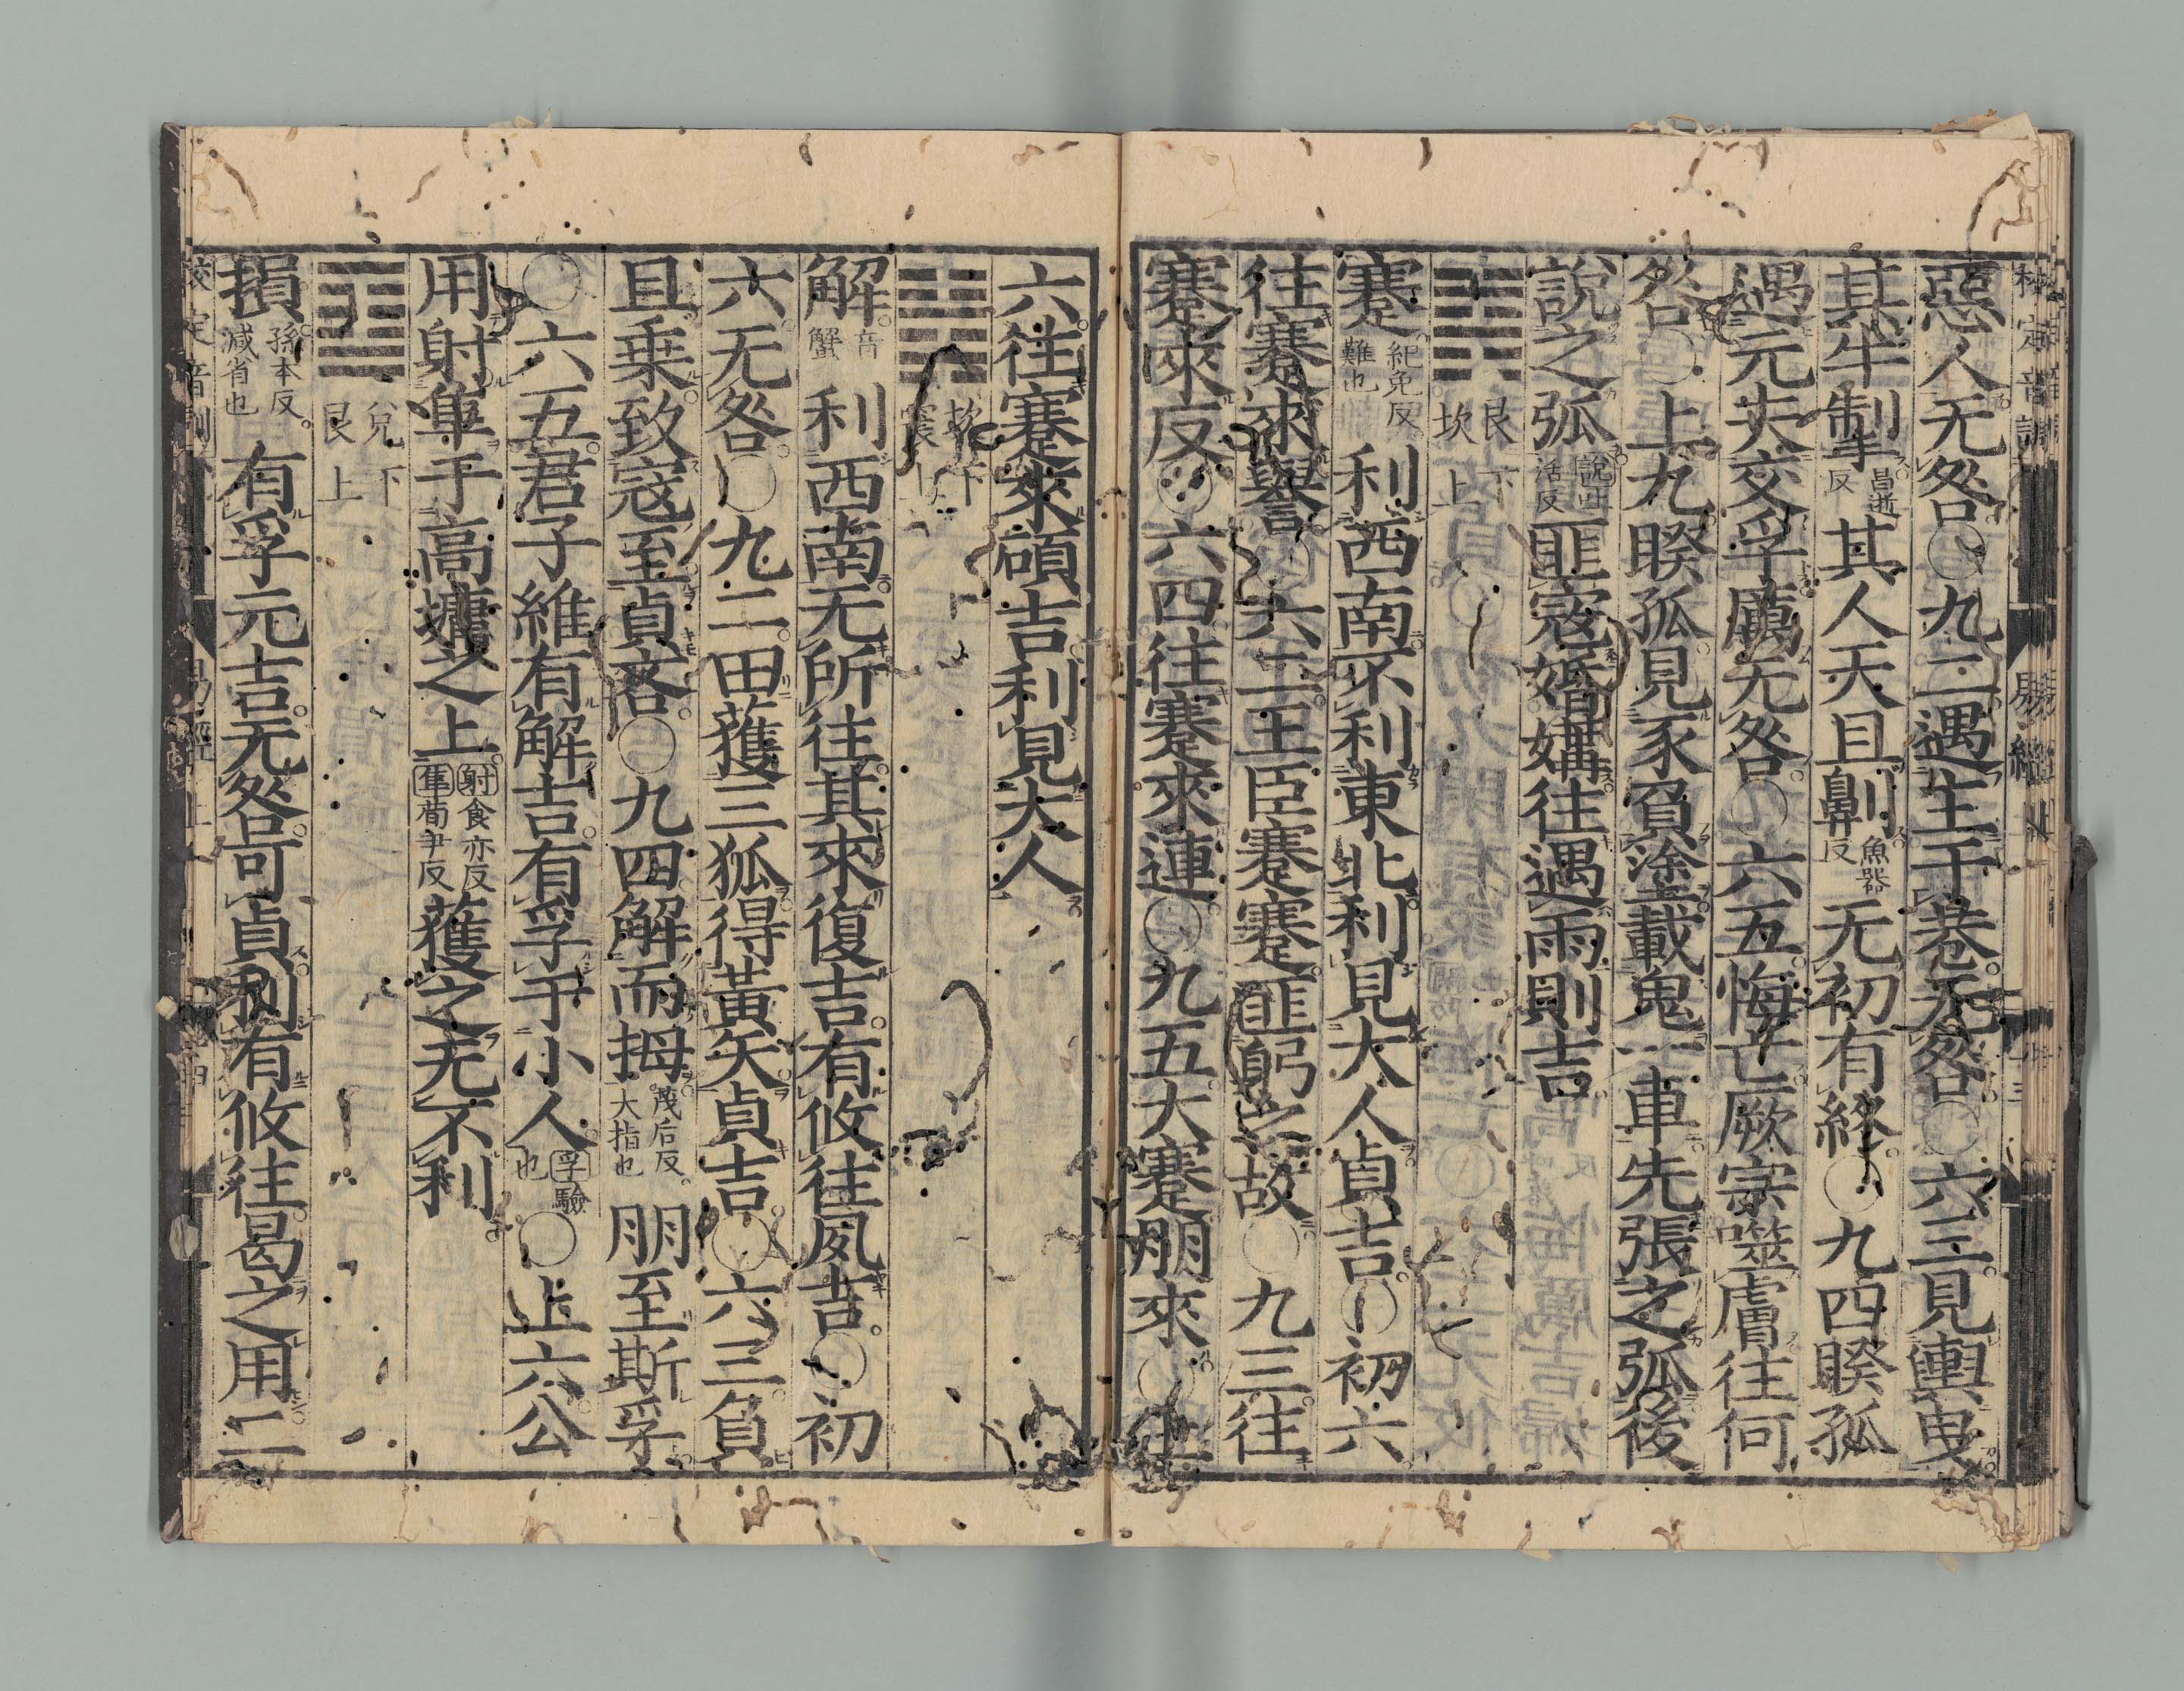 惡人无咎○九二遇主于巷无咎○六三見輿曳
其牛制昌逝反其人天且劓魚器反无初有終○九四睽孤
遇元夫交孚厲无咎○六五悔亡厥宗噬膚往何
咎○上九睽孤見豕負塗載鬼一車先張之弧後
說之弧說吐活反匪寇婚媾往遇雨則吉
艮下坎上
蹇紀免反難也利西南不利東北利見大人貞吉○初六
往蹇來譽○六二王臣蹇蹇匪躬之故○九三往
蹇來反○六四往蹇來連○九五大蹇朋來○上
六往蹇來碩吉利見大人
坎下震上
解音蟹利西南无所往其來復吉有攸往夙吉○初
六无咎○九二田獲三狐得黃矢貞吉○六三負
且乗致寇至貞吝○九四解而拇茂后反大指也朋至斯孚
○六五君子維有解吉有孚于小人孚驗也○上六公
用射隼于高墉之上射食亦反隼荀尹反獲之无不利
兌下艮上
損孫本反減省也有孚元吉无咎可貞利有攸往曷之用二